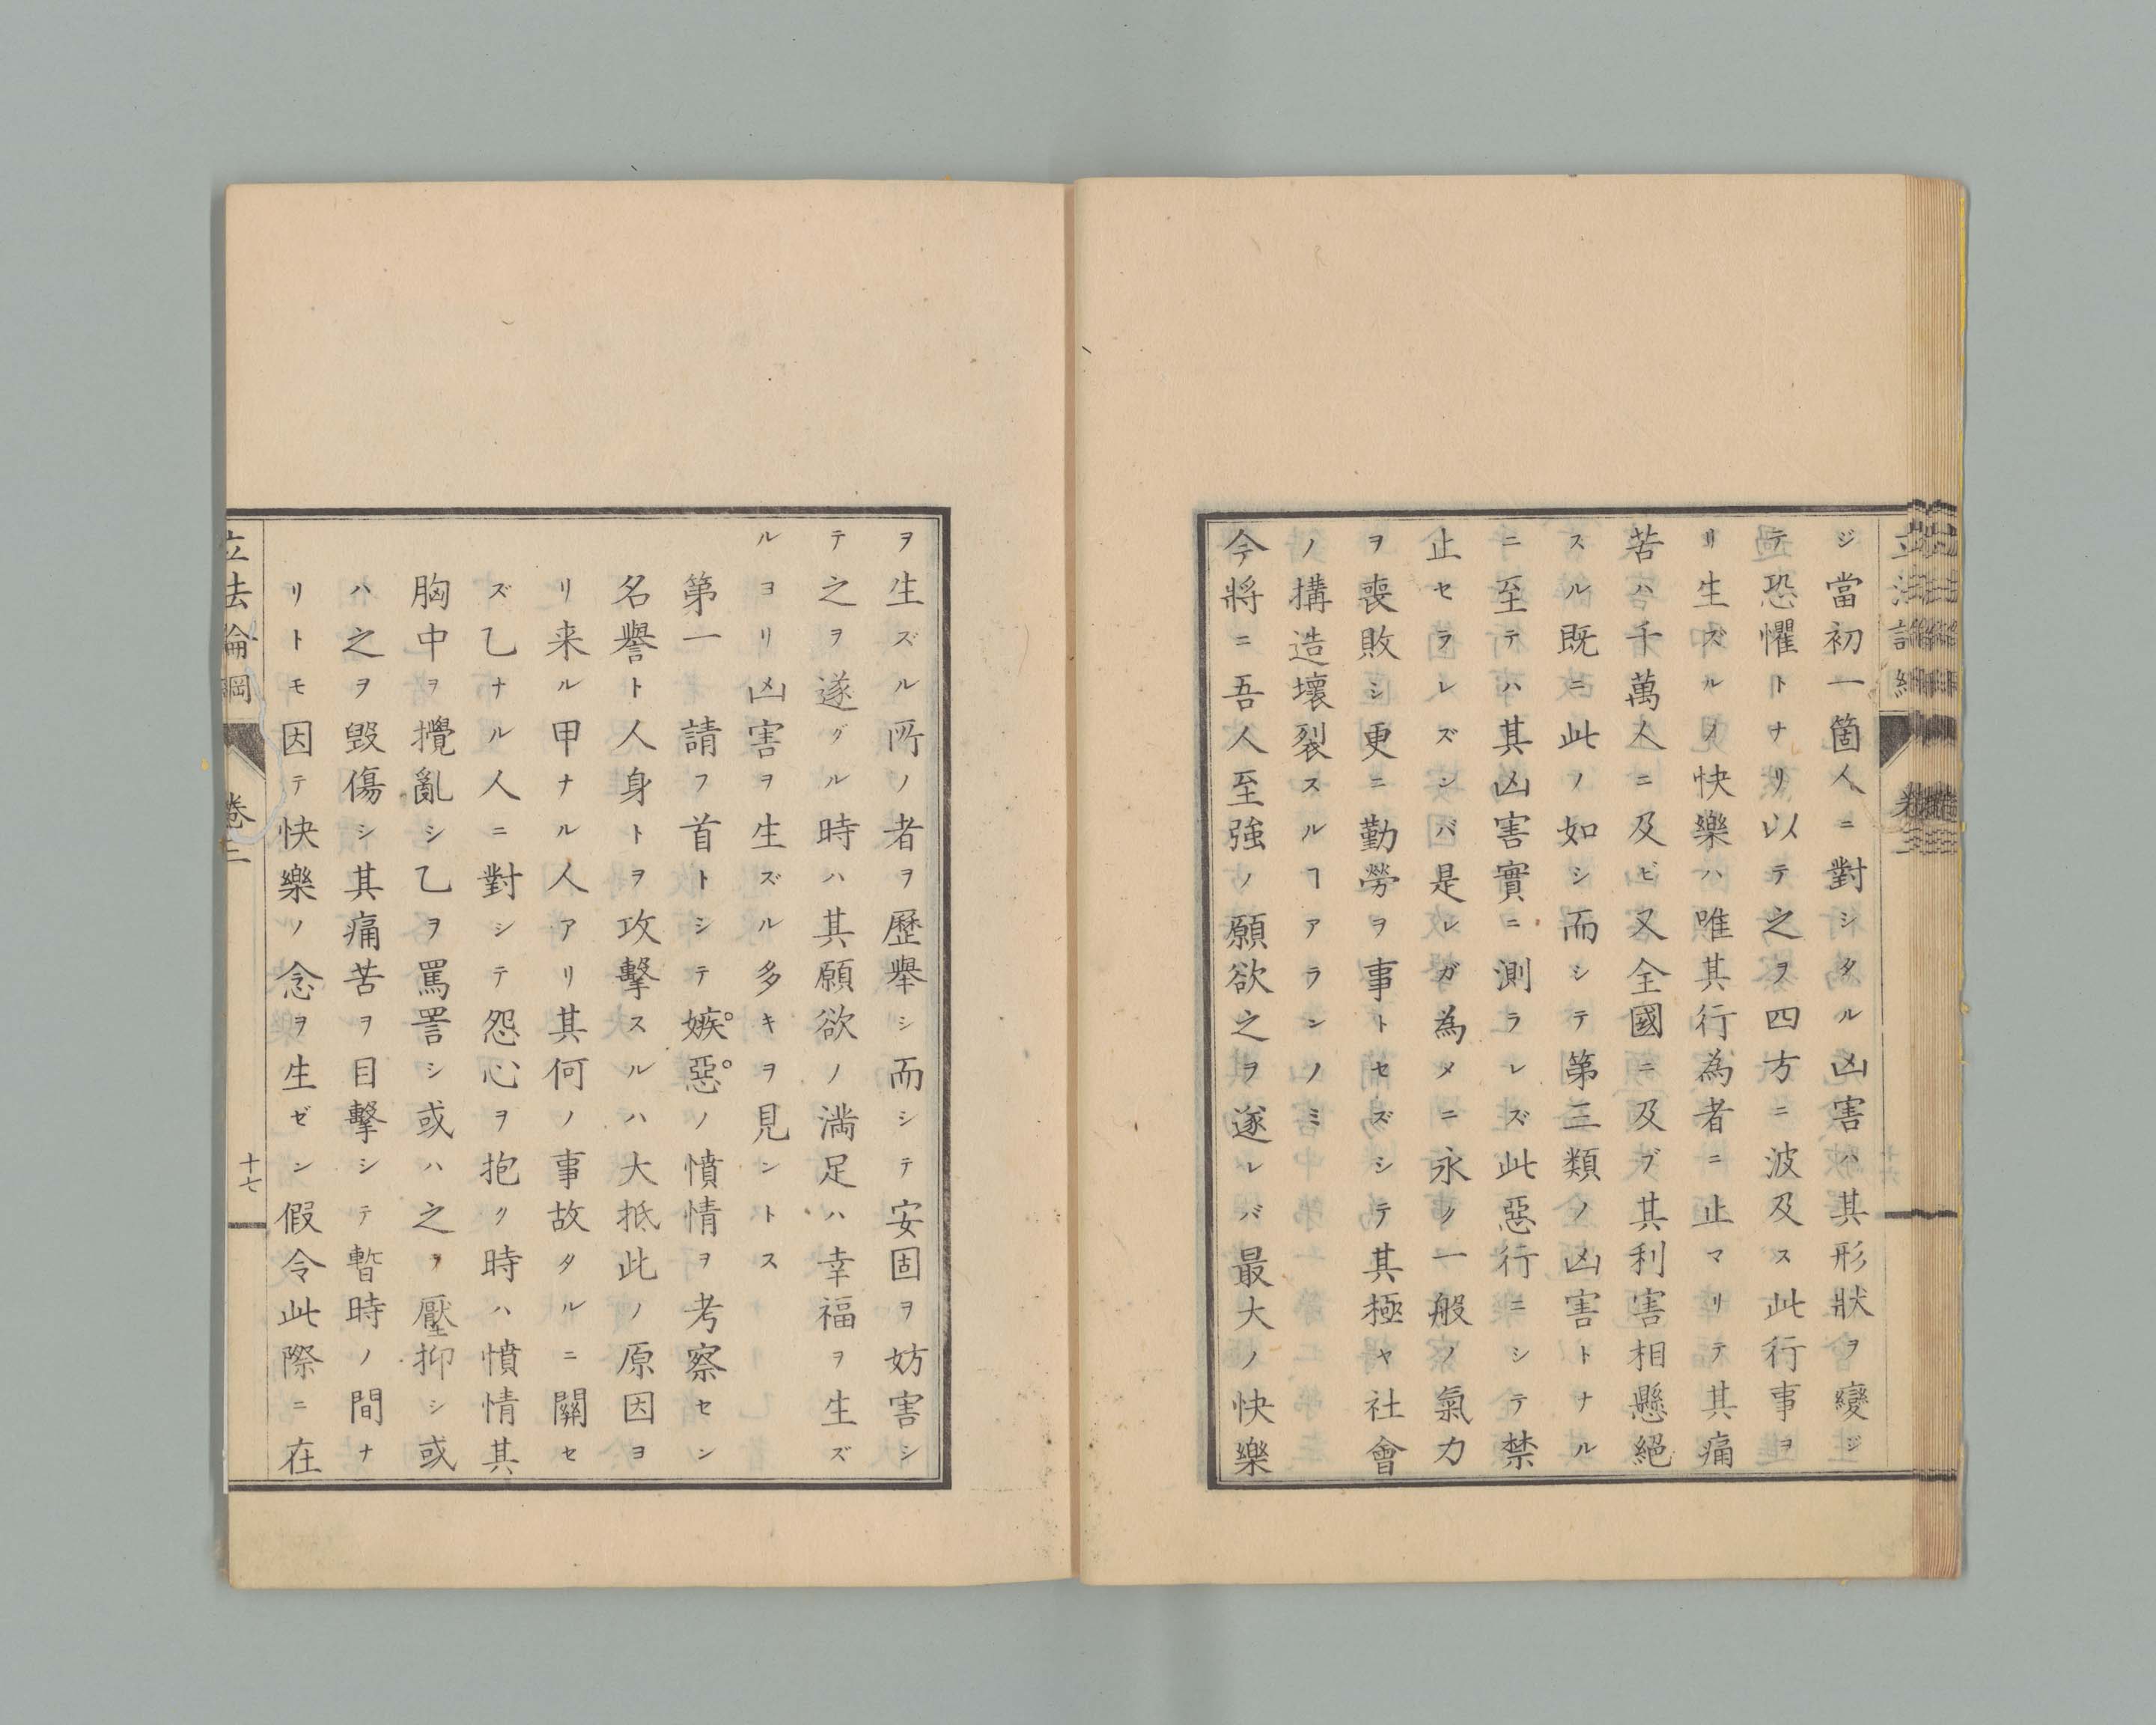 ジ當初一箇人ニ對シタル凶害ハ其形狀ヲ變ジ
テ恐懼トナリ以テ之ヲ四方ニ波及ス此行事ヲ
リ生ズルノ快樂ハ唯其行為者ニ止マリテ其痛
苦ハ千萬人ニ及ビ又全國ニ及ブ其利害相懸絕
スル既ニ此ノ如シ而シテ第三類ノ凶害トナル
ニ至テハ其凶害實ニ測ラレズ此惡行ニシテ禁
止セラレズンバ是レガ為メニ永ク一般ノ氣力
ヲ喪敗シ更ニ勤勞ヲ事トセズシテ其極ヤ社會
ノ構造壞裂スルヿアランノミ
今將ニ吾人至強ノ願欲之ヲ遂レバ最大ノ快樂
ヲ生ズル所ノ者ヲ歷舉シ而シテ安固ヲ妨害シ
テ之ヲ遂グル時ハ其願欲ノ満足ハ幸福ヲ生ズ
ルヨリ凶害ヲ生ズル多キヲ見ントス
第一 請フ首トシテ嫉惡ノ憤情ヲ考察セン
名譽ト人身トヲ攻擊スルハ大抵此ノ原因ヨ
リ来ル甲ナル人アリ其何ノ事故タルニ關セ
ズ乙ナル人ニ對シテ怨心ヲ抱ク時ハ憤情其
胸中ヲ攪亂シ乙ヲ罵詈シ或ハ之ヲ壓抑シ或
ハ之ヲ毀傷シ其痛苦ヲ目擊シテ暫時ノ間ナ
リトモ因テ快樂ノ念ヲ生ゼン假令此際ニ在
立法論綱 卷二 十七